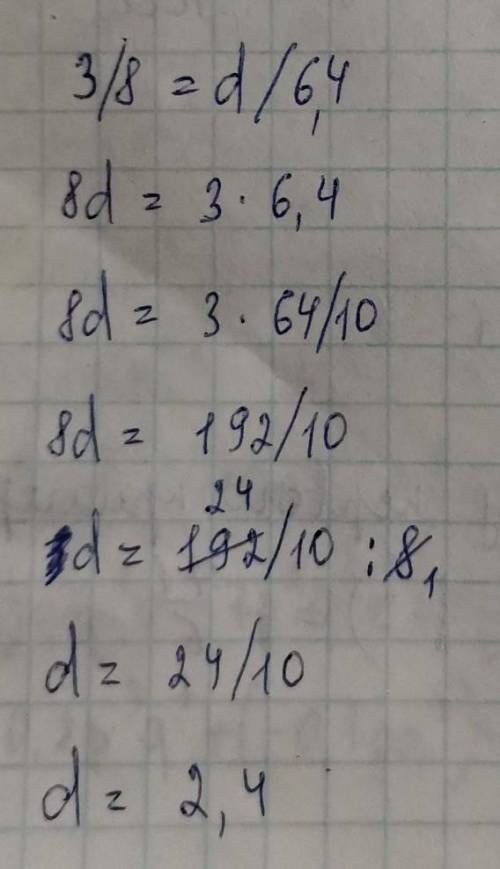 3/8 = d/6,4
8d = 3 · 6,4
8d = 3 · 64/10
8d = 192/10
24
d = 192/10 : 8,1
d = 24/10
d = 2,4